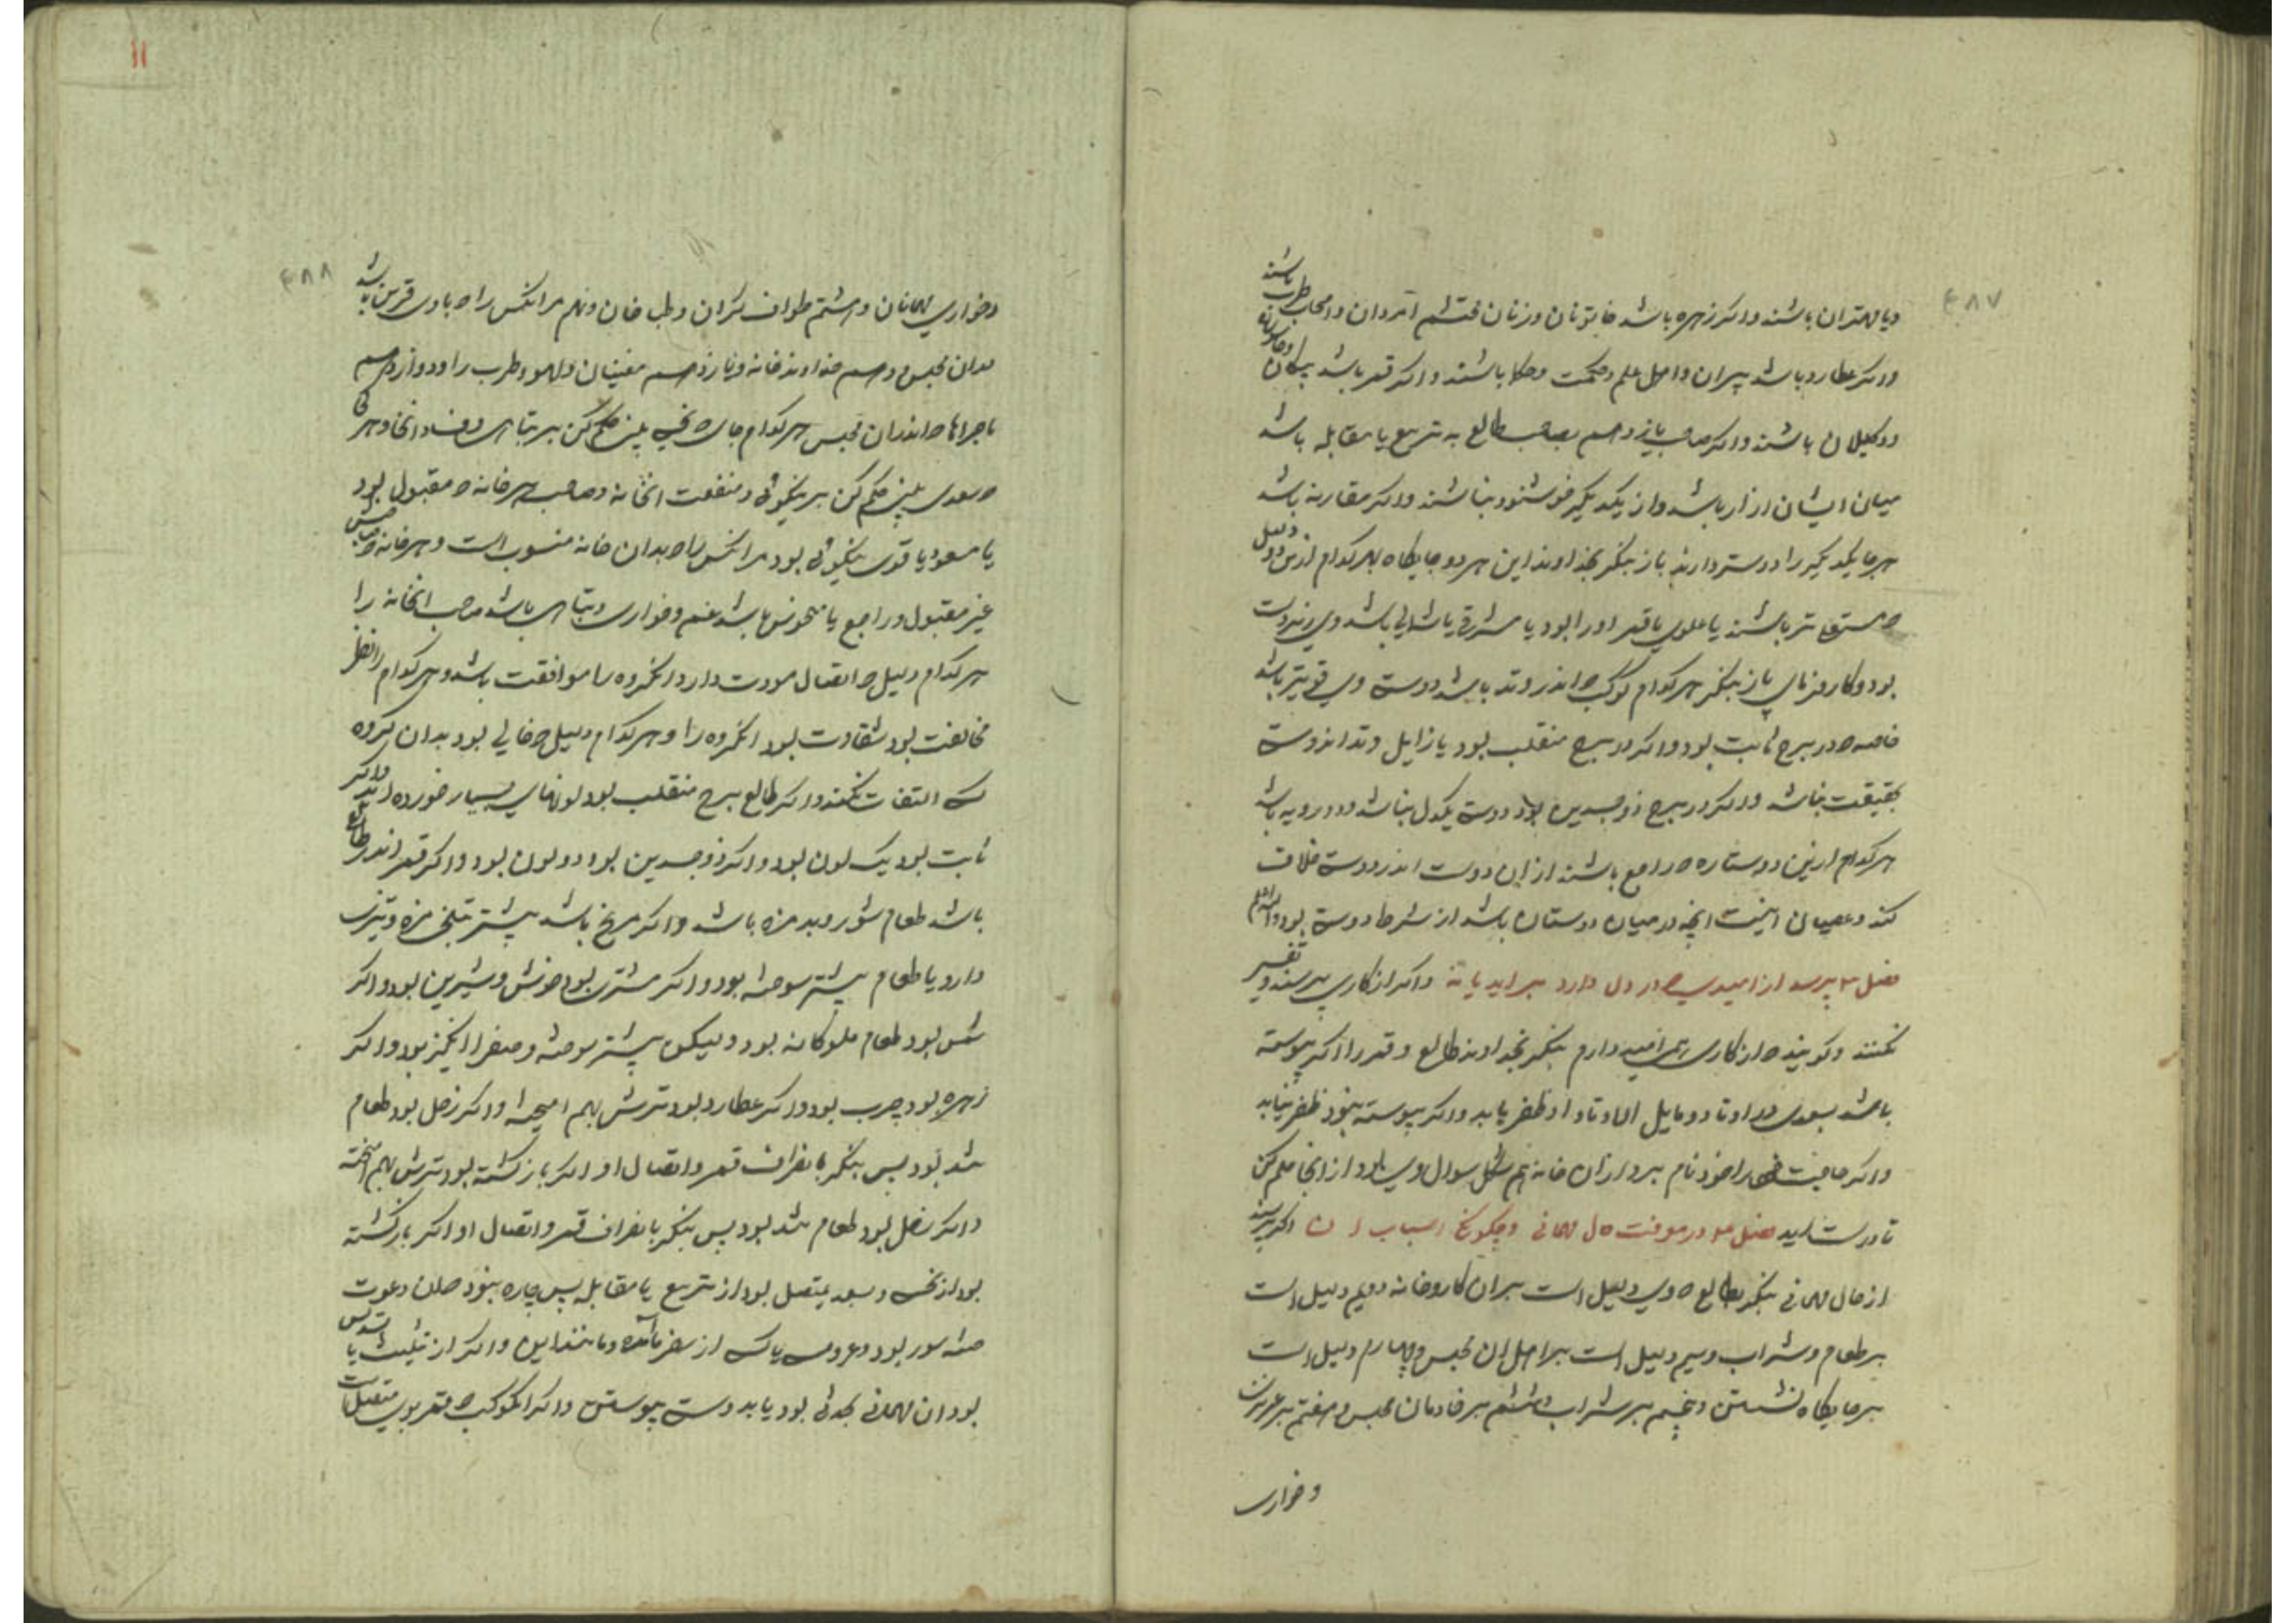 ۴۸۷
و یا مهتران باشند و اکر زهره باشد خاتونان و زنان محتشم امردان و اصحاب طرب باشند
و اکر عطارد باشد پیران و اهل علم و حکمت و حکما باشند و اکر قمر باشد پیکان و جاسوسان
و وکیلان باشند و اکر صاحب یازدهم بصاحب طالع به تربیع یا مقابله باشد
میان ایشان ازار باشد و از یکدیکر خوشنود نباشند و اکر مقارنه باشد
هر جا یکدیکر را دوستر دارند باز بنکر بخداوند این هر دو جایکاه بهر کدام ازین دو دلیل
مستعلی تر باشند یا علوی یا قمر او را بود یا مشرقی یا شمالی باشد وی زبردست
بود و کار فرمای باز بنکر هر کدام کوکب اندر وتد باشد دوستی وی قویتر باشد
خاصه در برج ثابت بود و اکر در برج منقلب بود یا زایل وتد اندوستی
بحقیقت نباشد و اکر در برج ذوجسدین بود دوستی یکدل نباشد و دو رویه باشد
هر کدام ازین دو ستاره راجع باشند از ان دوست اندر دوستی خلاف
کند و عصیان اینست انچه در میان دوستان باشد از شرط دوستی بود والسلام
فصل ۲ پرسد از امیدی در دل دارد براید یا نه و اکر از کاری پرسند و تفسیر
نکنند و کویند از کاری همی امید دارم بنکر بخداوند طالع و قمر را اکر پیوسته
باشد بسعدی در اوتاد و مایل الاوتاد او ظفر یابد و اکر پیوسته نبود ظفر نیابد
و اکر حاجت را خود نام برد از ان خانه هم شکل سوال وی بود از انجا حکم کن
تا درست اید فصل ۳ در معرفت حال مهمانی و چکونکی اسباب ان اکر پرسند
از حال مهمانی بنکر بطالع وی دلیل است بر ان کار و خانه دویم دلیل است
بر طعام و شراب و سیم دلیل است بر اهل ان مجلس و چهارم دلیل است
بر جایکاه نشستن و پنجم بر شراب و ششم بر خادمان مجلس و هفتم بر عزیزان
و خواری
۱۱
۴۸۸
و خواری مهمانان و هشتم طواف کران و طباخان و نهم مر انکس را با وی قرین باشد
بدان مجلس دهم خداوند خانه و یازدهم مغنیان و لهو و طرب را و دوازدهم
ماجراها اندران مجلس هر کدام جای نحسی بینی حکم کن بر تباهی و فساد انخانه و هر
سعدی بینی حکم کن بر نیکوئی و منفعت انخانه و صاحب هر خانه مقبول بود
یا مسعود یا قوی نیکوئی بود مر انکس را بدان خانه منسوب است و هر خانه صاحبش
غیر مقبول و راجع یا منحوس باشد غم و خواری و تباهی باشد صاحب انخانه را
هر کدام دلیل اتصال مودت دارد انکروه را موافقت باشد و هر کدام را نظر
مخالفت بود شقاوت بود انکروه را و هر کدام دلیل خالی بود بدان کروه
کسی التفات نکند و اکر طالع برج منقلب بود لونهای بسیار خورده اند و اکر
ثابت بود یک لون بود و اکر ذوجسدین بود دو لون بود و اکر قمر اندر طالع
باشد طعام شور و بد مزه باشد و اکر مریخ باشد بیشتر تلخ مزه و تیزی
دارد یا طعام بیشتر سوخته بود و اکر مشتری بود خوش و شیرین بود و اکر
شمس بود طعام ملوکانه بود ولیکن بیشتر سوخته و صفرا انکیز بود و اکر
زهره بود چرب بود و اکر عطارد بود ترش بهم امیخته و اکر زحل بود طعام
بود پس بنکر بانصراف قمر و اتصال او اکر بازکشته بود ترش بهم امیخته
و اکر زحل بود طعام بود پس بنکر بانصراف قمر و اتصال او اکر بازکشته
بود از نحس و بسعد متصل بود از تربیع یا مقابله پس چاره نبود دعوت
ختنه سور بود و عروسی یا کسی از سفر آمده و مانند این و اکر از تثلیث یا تسدیس
بود ان مهمانی بود یا بدوستی پیوستن و اکر انکوکب قمر بوی متصل است